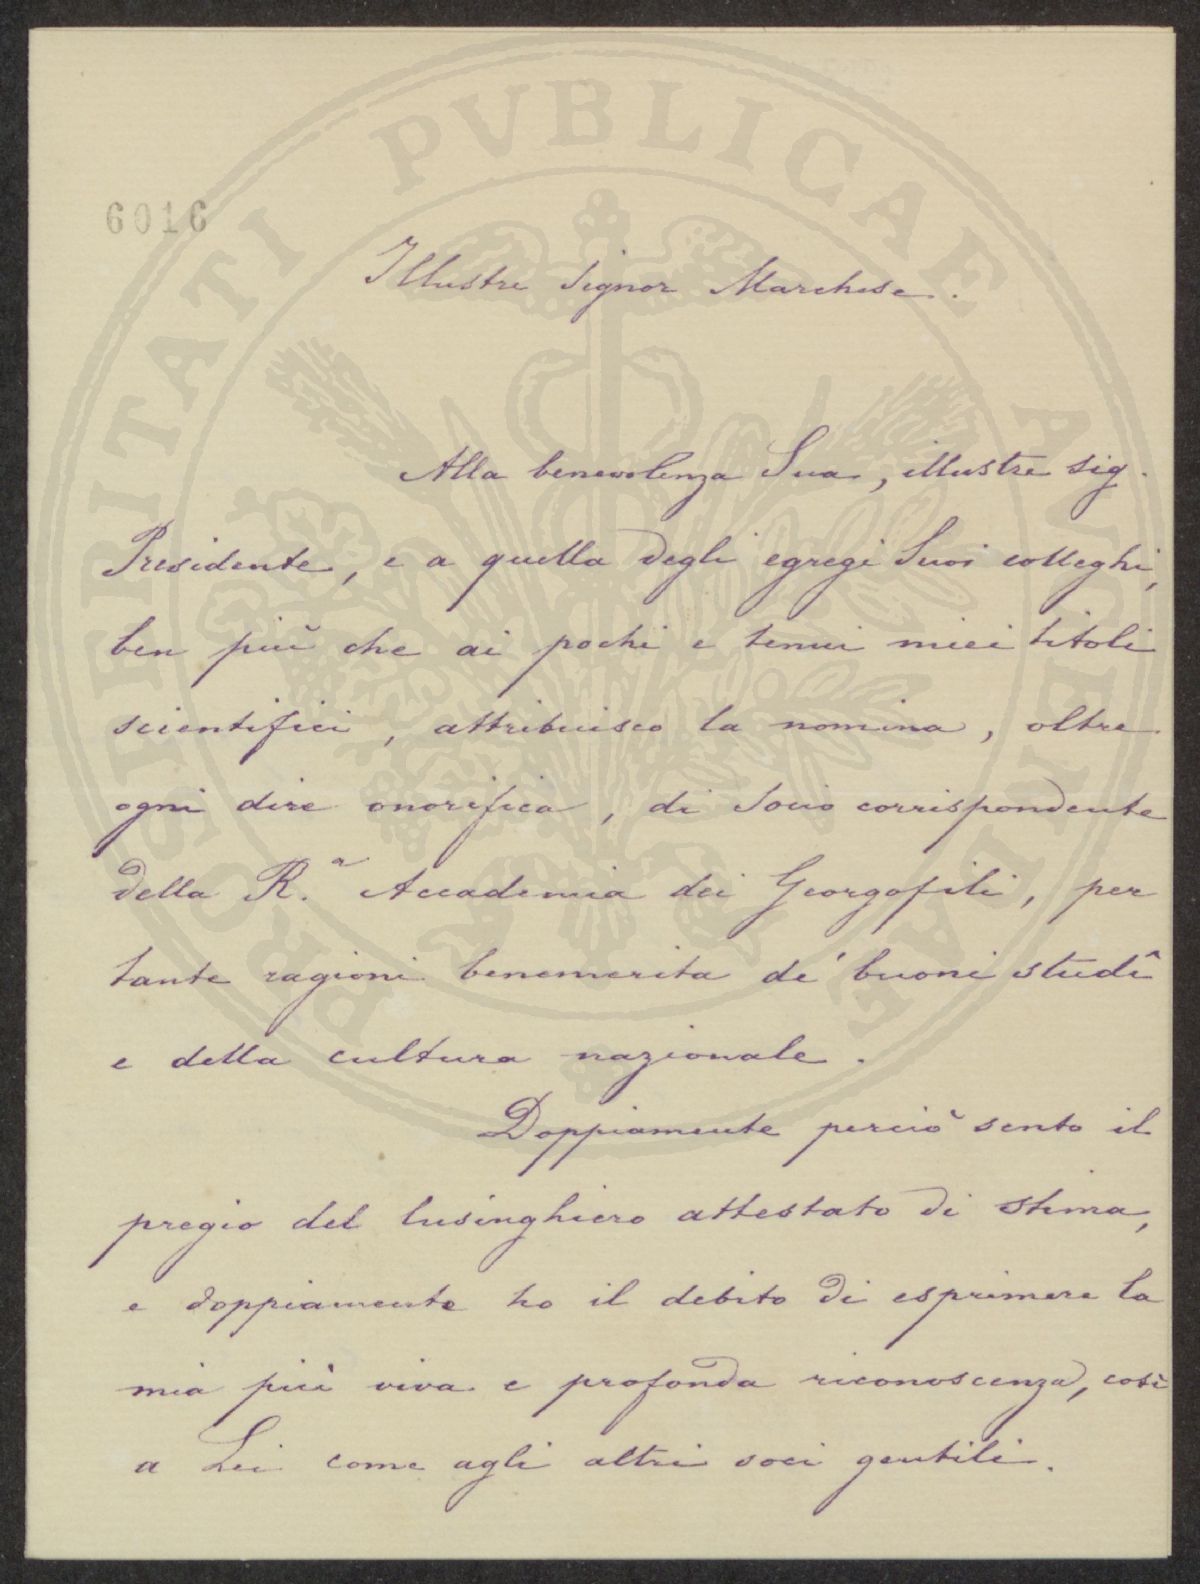 PROSPERITATI PVBLICAE AVGENDAE
6016
Illustre Signor Marchese.
Alla benevolenza Sua, illustre sig.
Presidente, e a quella degli egregi Suoi colleghi,
ben più che ai pochi e tenui miei titoli
scientifici, attribuisco la nomina, oltre
ogni dire onorifica, di Socio corrispondente
della R.ª Accademia dei Georgofili, per
tante ragioni benemerita de' buoni studî
e della cultura nazionale.
Doppiamente perciò sento il
pregio del lusinghiero attestato di stima,
e doppiamente ho il debito di esprimere la
mia più viva e profonda riconoscenza, così
a Lei come agli altri soci gentili.